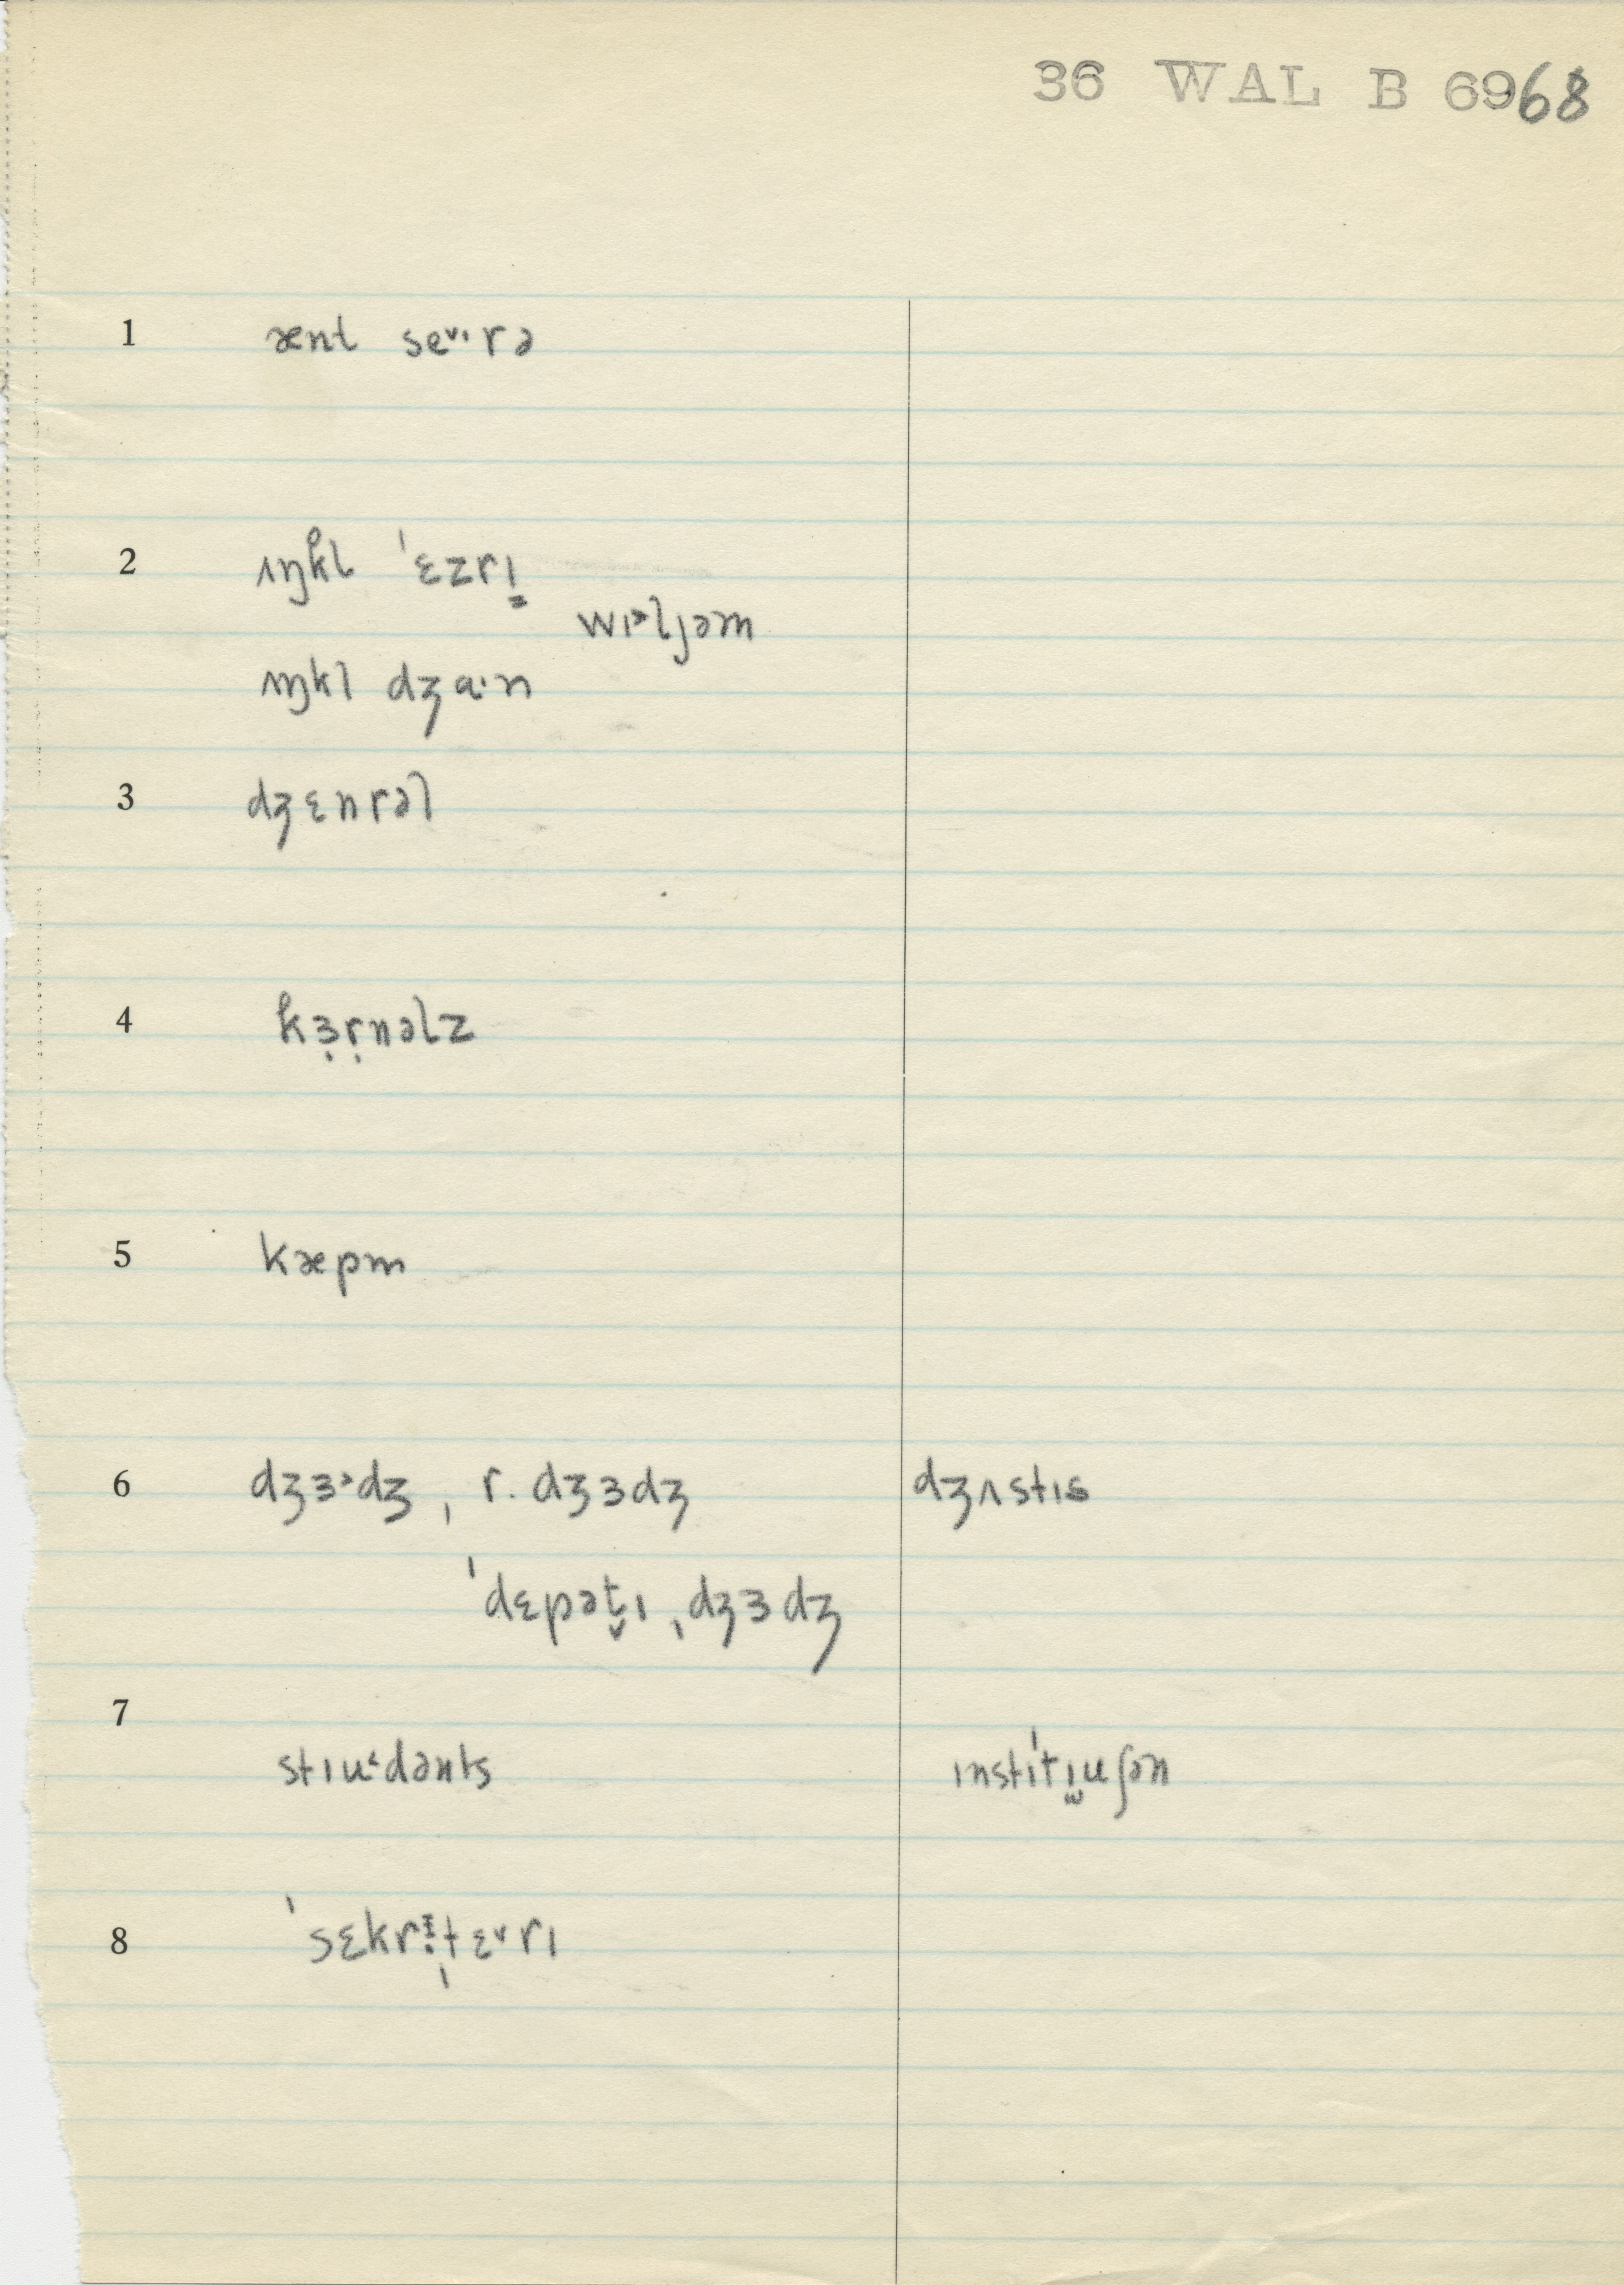 36 WAL B 6968
1 ænt seᵛᶦ·rə
2 ʌŋk̊l ˈɛzrɪ̳
wɪᵊljəm
ʌŋkl dʒɑ·n
3 dʒɛnrəl
4 k̊ɜ̣ṛnəlz
5 kæpm
6 dʒɜ˃dʒ , r. dʒɜdʒ dʒʌstɪs
ˈdɛpət̬ɪ ˌdʒɜdʒ
7
stɪu˂dənts ɪnstɪˈtɪ̯uʃən
8 ˈsɛkrɪˌtɛ˅rɪ